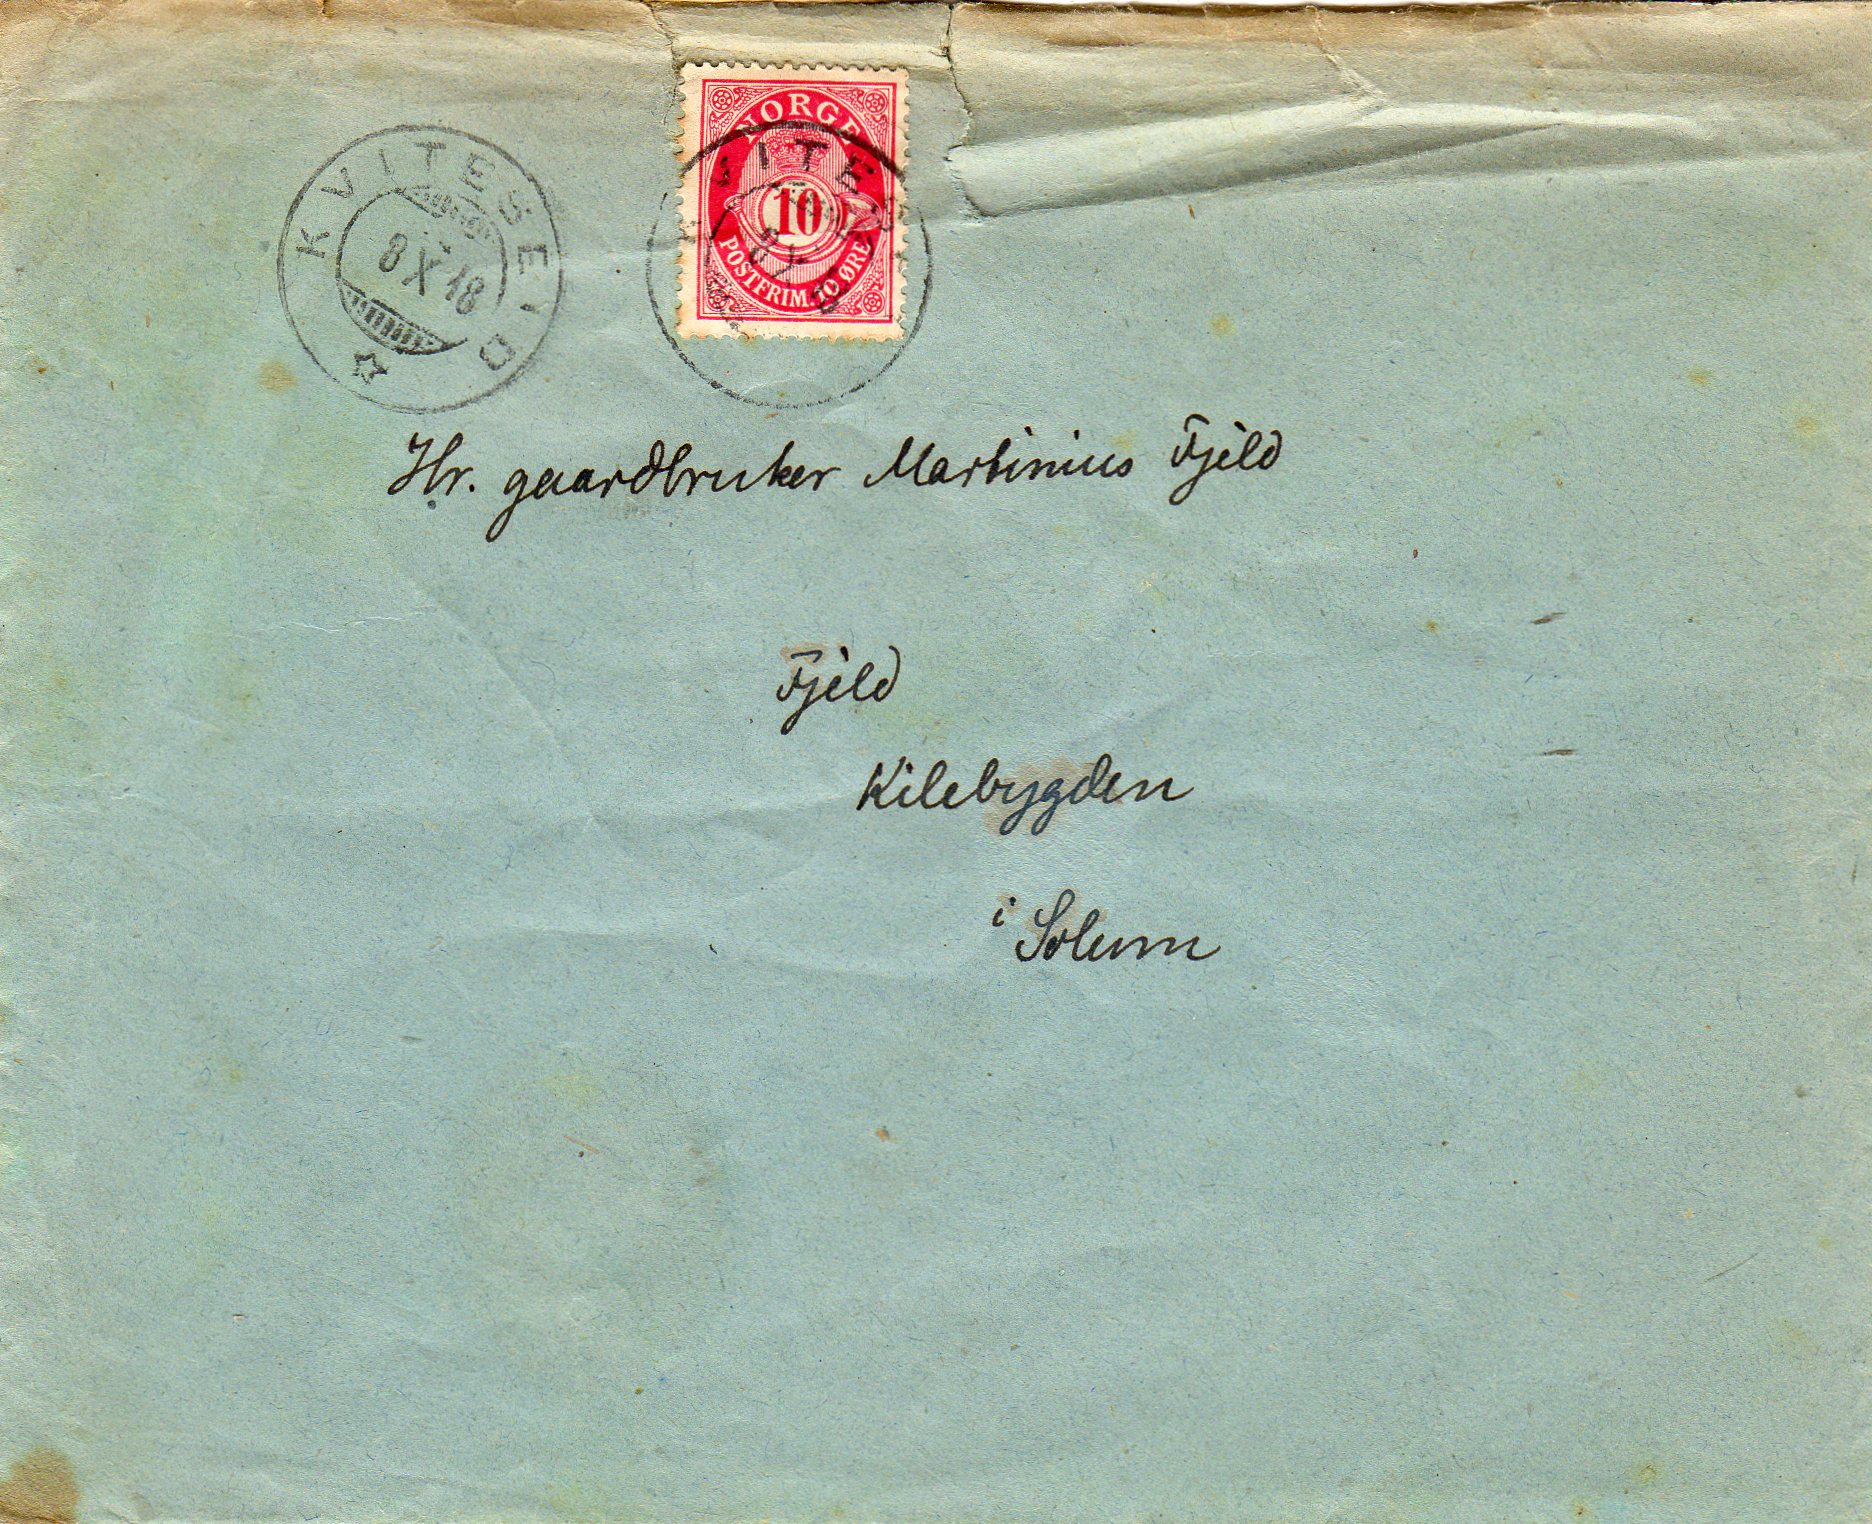 KVITESEID
8 X 18
NORGE
10
POSTFRIM. 10 ØRE
KVITES
8 X 18
Hr. gaardbruker Martinius Fjeld
Fjeld
Kilebygden
i Solum